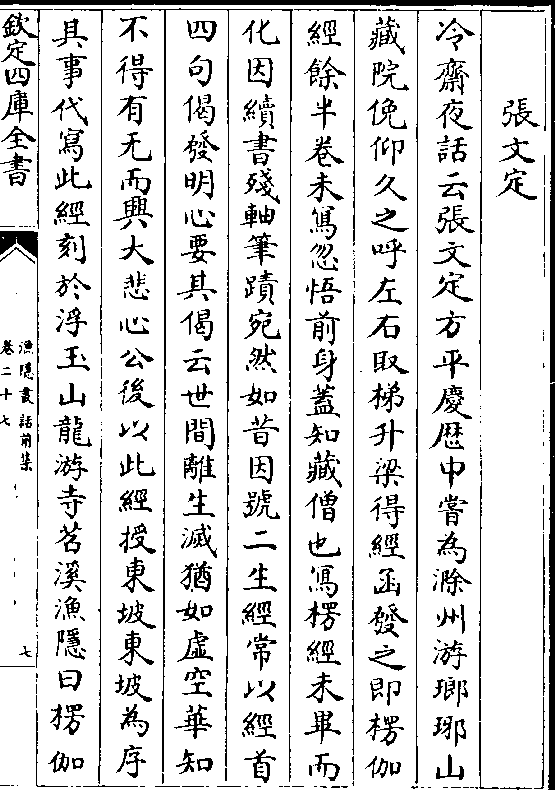 張文定
冷齋夜話云張文定方平慶厯中嘗為滁州游瑯琊山
藏院俛仰久之呼左右取梯升梁得經函發之即楞伽
經餘半卷未寫忽悟前身蓋知藏僧也寫楞經未畢而
化因續書殘軸筆蹟宛然如昔因號二生經常以經首
四句偈發明心要其偈云世間離生滅猶如虛空華知
不得有无而興大悲心公後以此經授東坡東坡為序
具事代寫此經刻於浮玉山龍游寺苕溪漁隱曰楞伽
欽定四庫全書
漁隱叢話前集
卷二十七
七